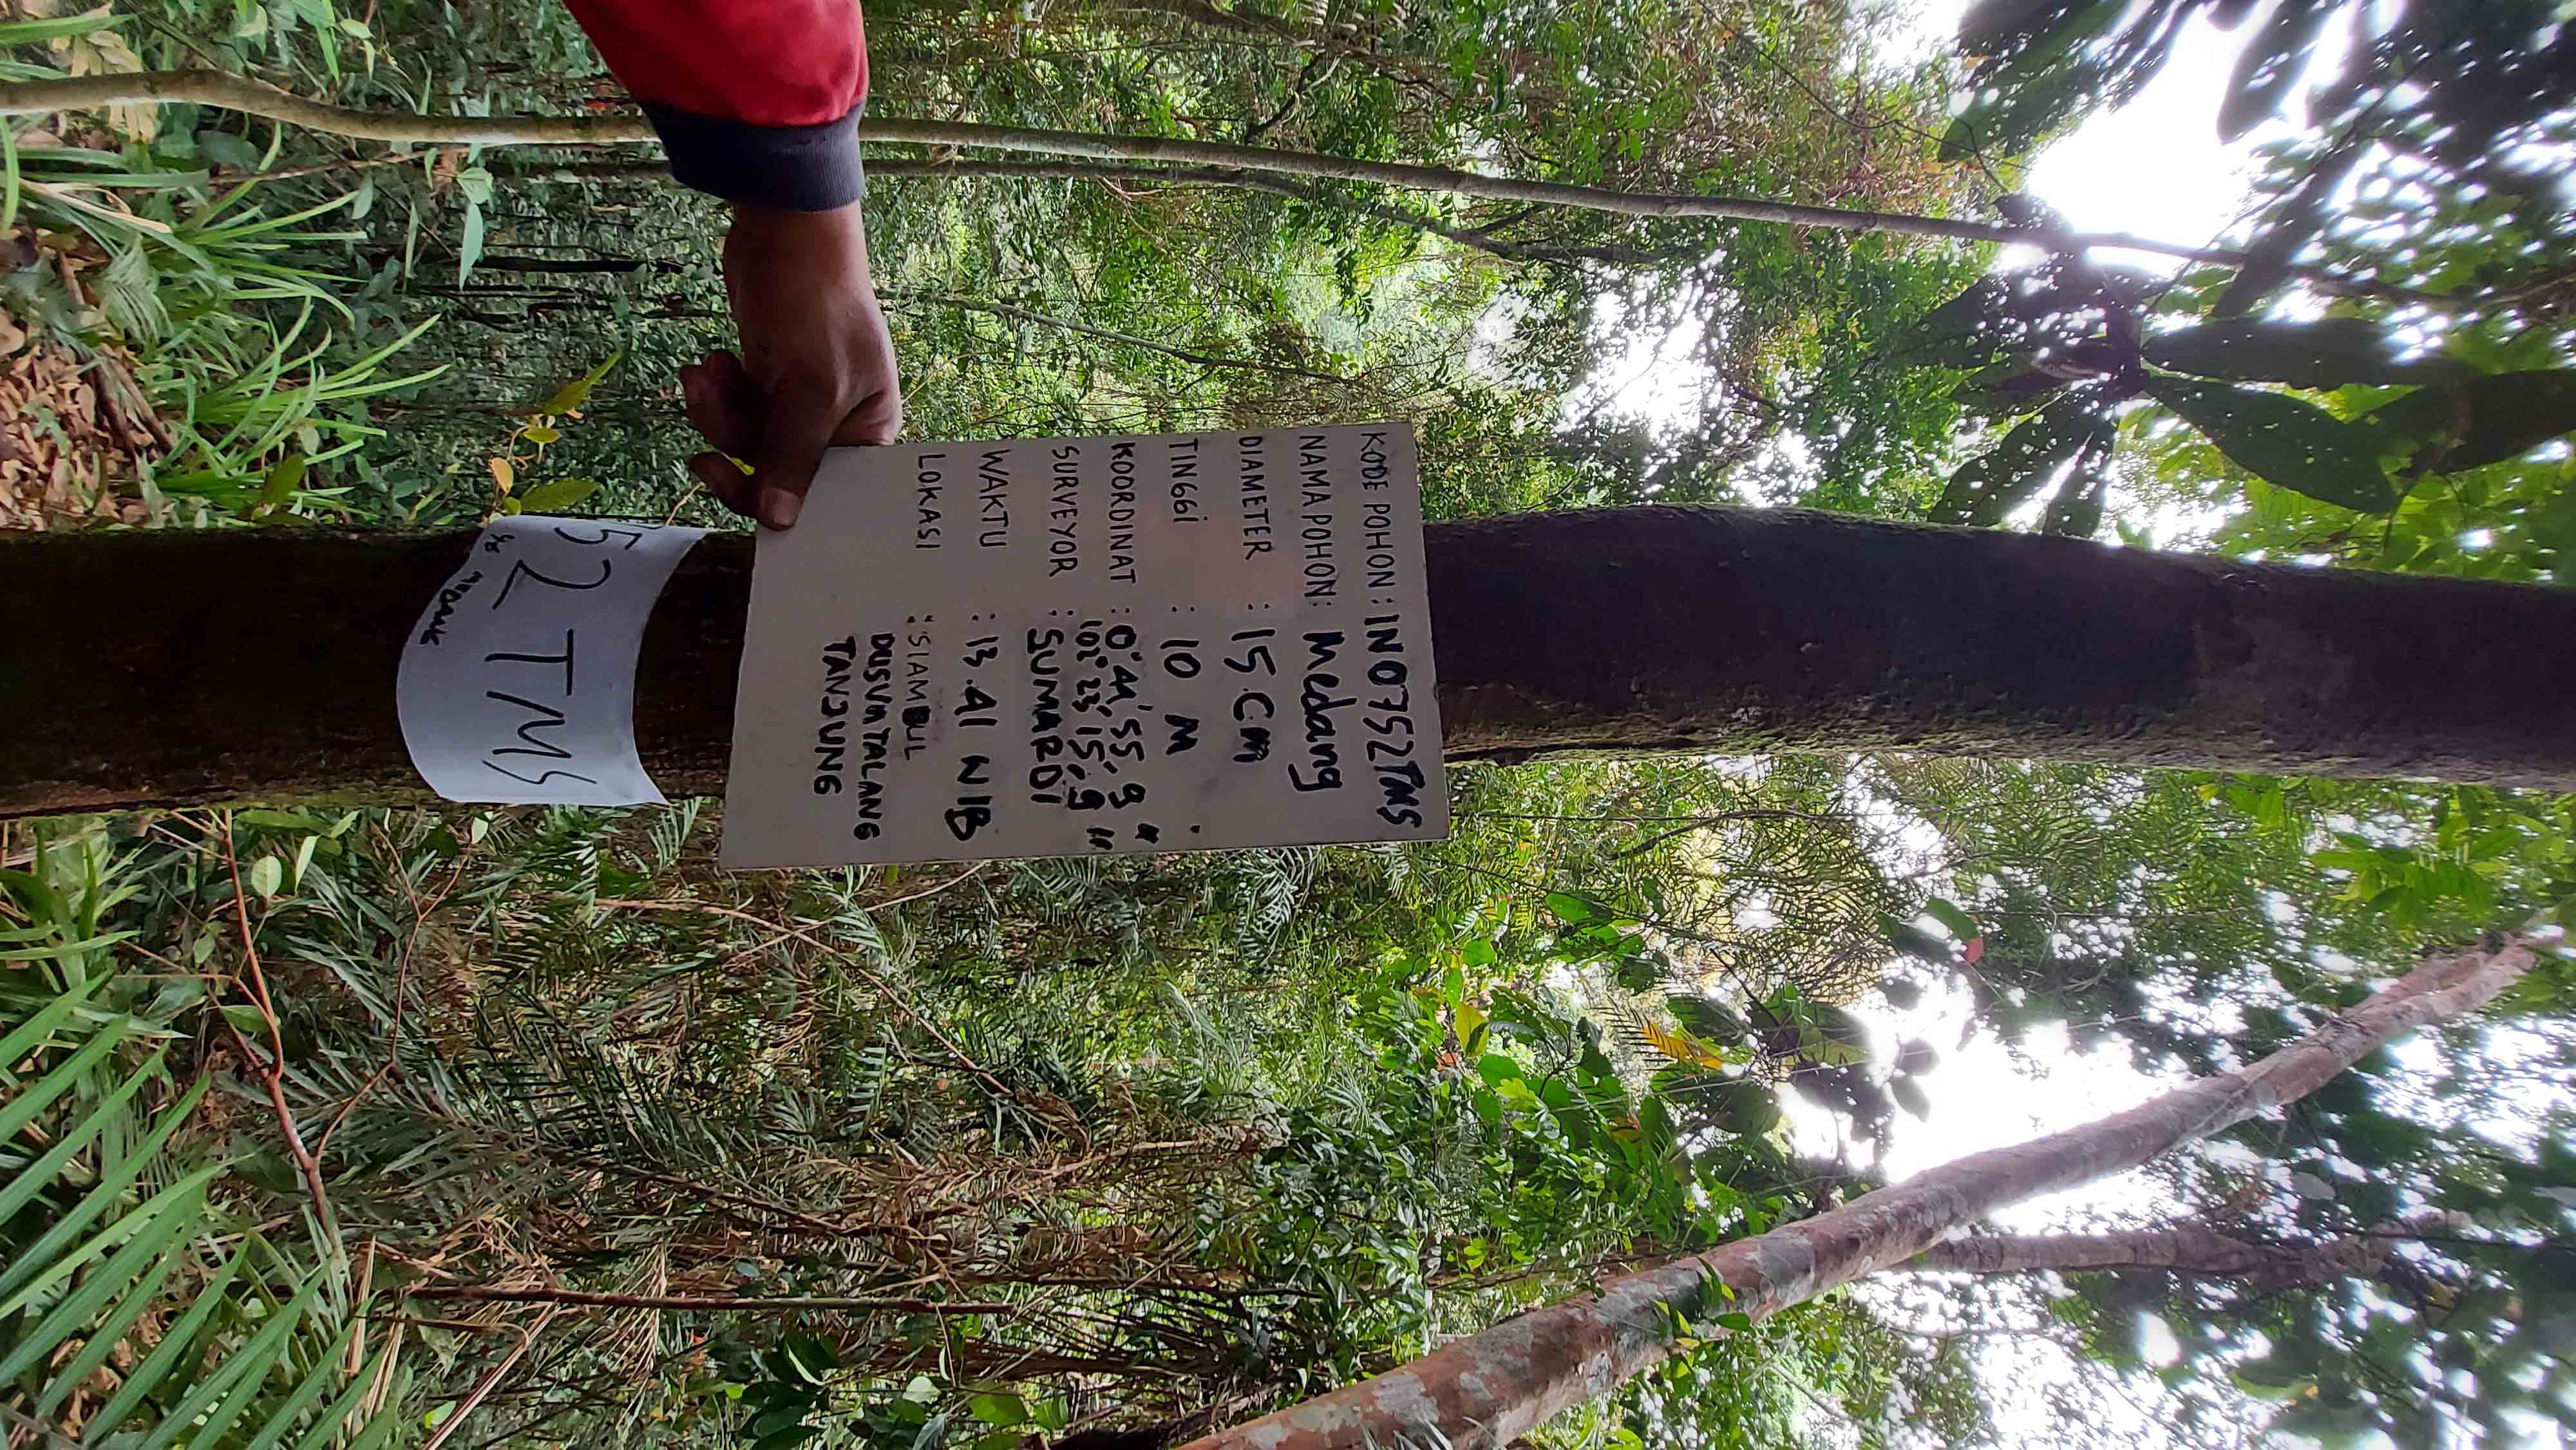 KODE POHON : IN0752TMS
NAMA POHON : Medang
DIAMETER : 15 Cm
TINGGi : 10 M
KOORDINAT : 0° 41' 55, 9 "
102° 25' 15, 9 "
SURVEYOR : SUMARDI
WAKTU : 13.41 WIB
LOKASI : SIAMBUL
DUSUN TALANG
TANJUNG
52 TMS
MEDANG